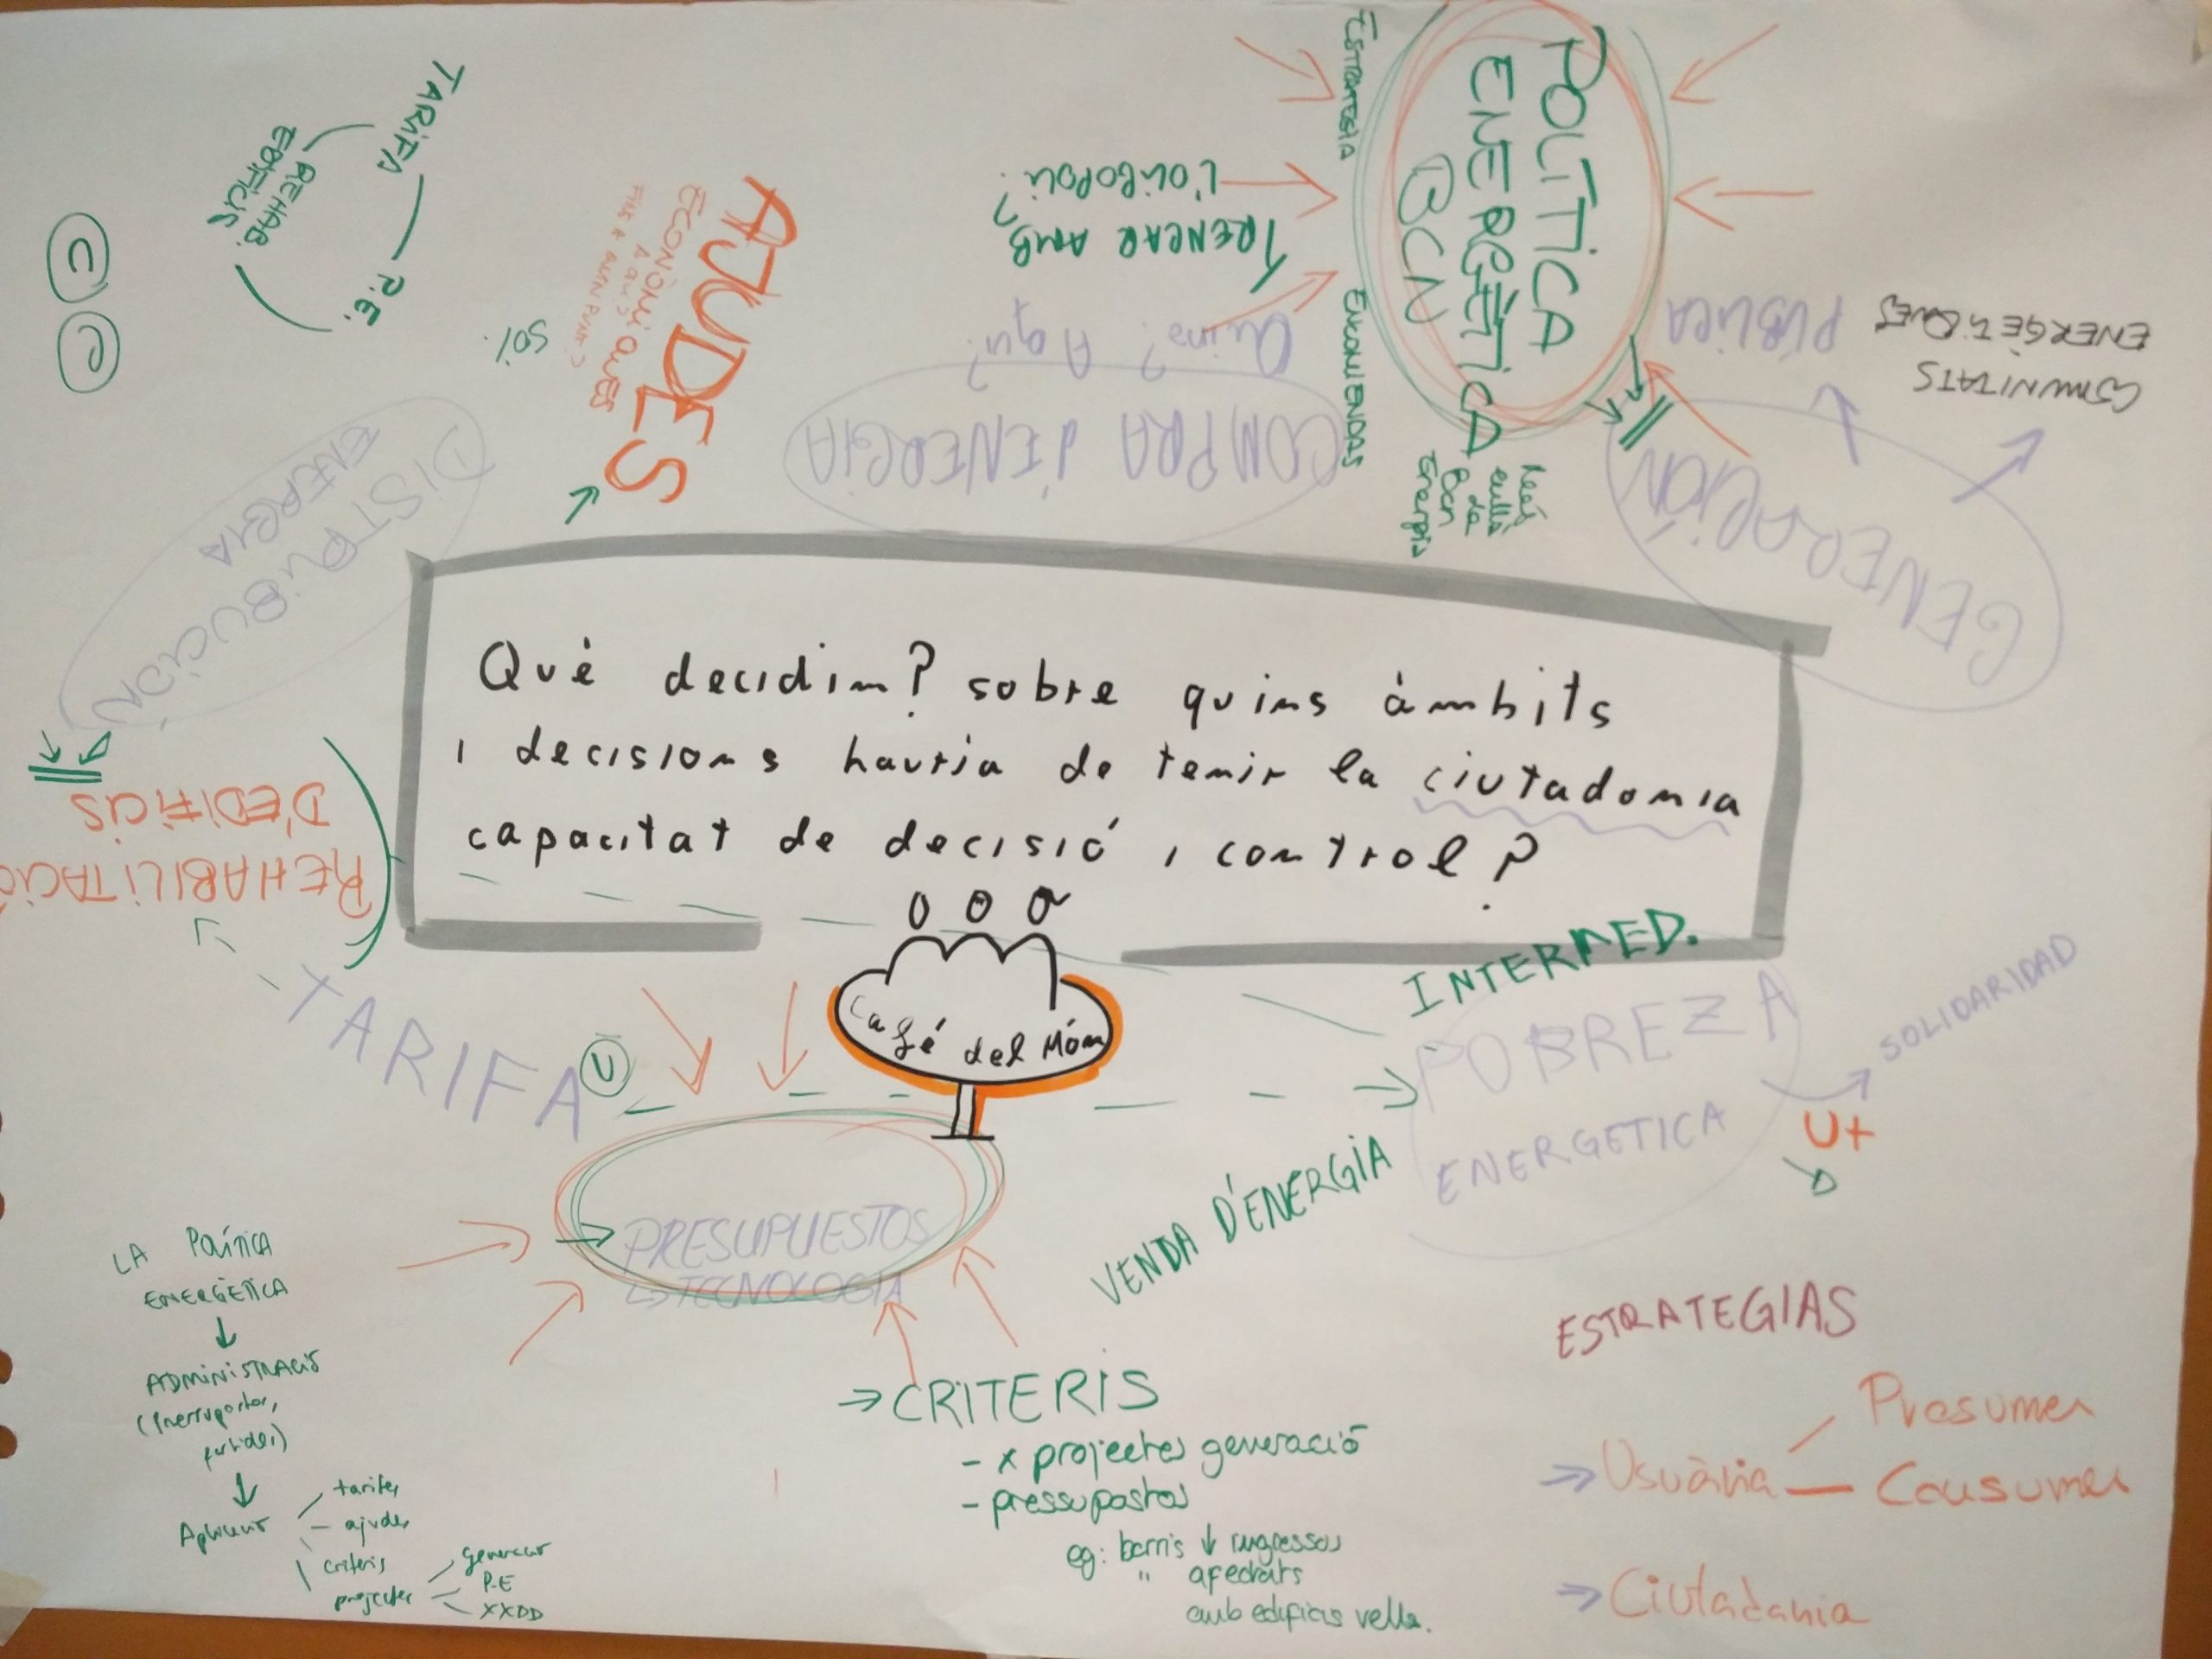 POLITICA
ENERGÈTICA
BCN
ESTRATEGIA
ENCOMIENDAS
Més
enllà
de
Bcn
Energia
TRENCAR AMB
L'OLIGOPOLI.
COMPRA D'ENERGIA
Quina? A qui?
GENERACIÓN
PÚBLICA
COMUNITATS
ENERGÈTIQUES
AJUDES
ECONÒMIQUES
A qui?
SOL.
TARIFA
P.E.
REHAB.
EDIFICIS
C
C
DISTRIBUCIÓN
ENERGIA
REHABILITACIÓ
D'EDIFICIS
Què decidim? sobre quins àmbits
i decisions hauria de tenir la ciutadania
capacitat de decisió i control?
Café del Món
TARIFA
U
INTERMED.
POBREZA
ENERGETICA
SOLIDARIDAD
U+
PRESUPUESTOS
↳ TECNOLOGIA
VENDA D'ENERGIA
LA POLÍTICA
ENERGÈTICA
↓
ADMINISTRACIÓ
↓
tarifes
- ajudes
criteris
projectes
generació
P.E
XXDD
→ CRITERIS
- x projectes generació
- pressupostos
eg: barris ↓ ingressos
" afectats
amb edificis vells.
ESTRATEGIAS
⇒ Usuària
Prosumer
Consumer
⇒ Ciutadania